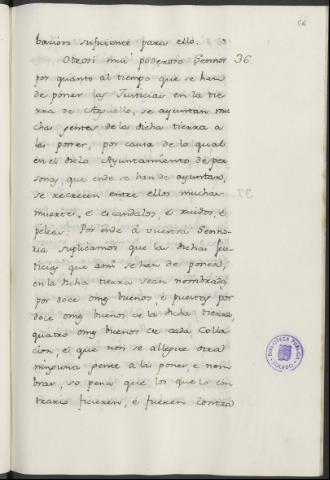 56
bacion suficiente para ello.
36. Otrosi mui poderoso Sennor
por quanto al tiempo que se han
de poner las Justicias en la tie
rra de Arguello, se ayuntan mu
chas gentes de la dicha tierra a
las poner, por causa de lo qual
en el dicho Ayuntamiento de per
sonas, que ende se han de ayuntar,
se recrecen entre ellos muchas
muertes, e escandalos, e ruidos, e
peleas: Por ende a vuestra Senno
ria suplicamos que las dichas jus
ticias que ansi se han de poner,
en la dicha tierra sean nombradas
por doce omes buenos, e puestas por
doce omes buenos de la dicha tierra
quatro omes buenos de cada Colla
cion, e que non se allegue otra
ninguna gente a las poner, e nom
brar, so pena que los que lo con
trario ficieren, e fueren contra
BIBLIOTECA PUBLICA
TOLEDO